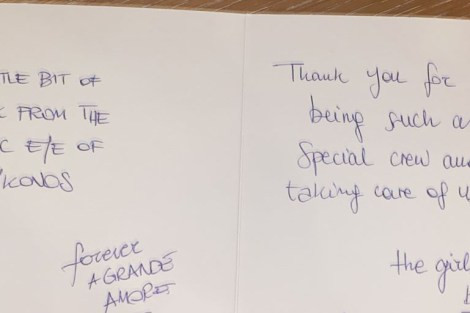 TLE BIT OF
C FROM THE
C EYE OF
YKONOS
forever
A GRANDE
AMORE
Thank you for
being such a
special crew and
taking care of u
the girl